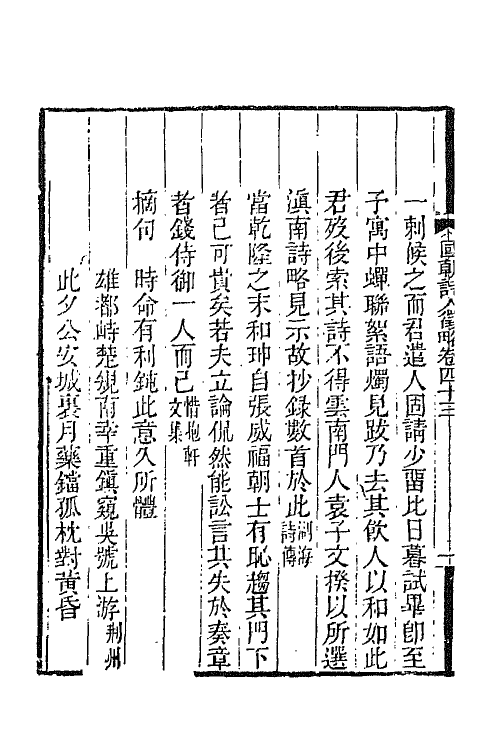 國朝詩人徵略卷四十三
一刺候之而君遣人固請少畱比日暮試畢卽至
子寓中蟬聯絮語燭見跋乃去其飮人以和如此
君歿後索其詩不得雲南門人袁子文揆以所選
滇南詩略見示故抄錄數首於此湖海詩傳
當乾隆之末和珅自張威福朝士有恥趨其門下
者已可貴矣若夫立論侃然能訟言其失於奏章
者錢侍御一人而已惜抱軒文集
摘句　時命有利鈍此意久所體
雄都峙楚規南紀重鎭窺吳號上游荆州
此夕公安城裏月藥鐺孤枕對黃昏